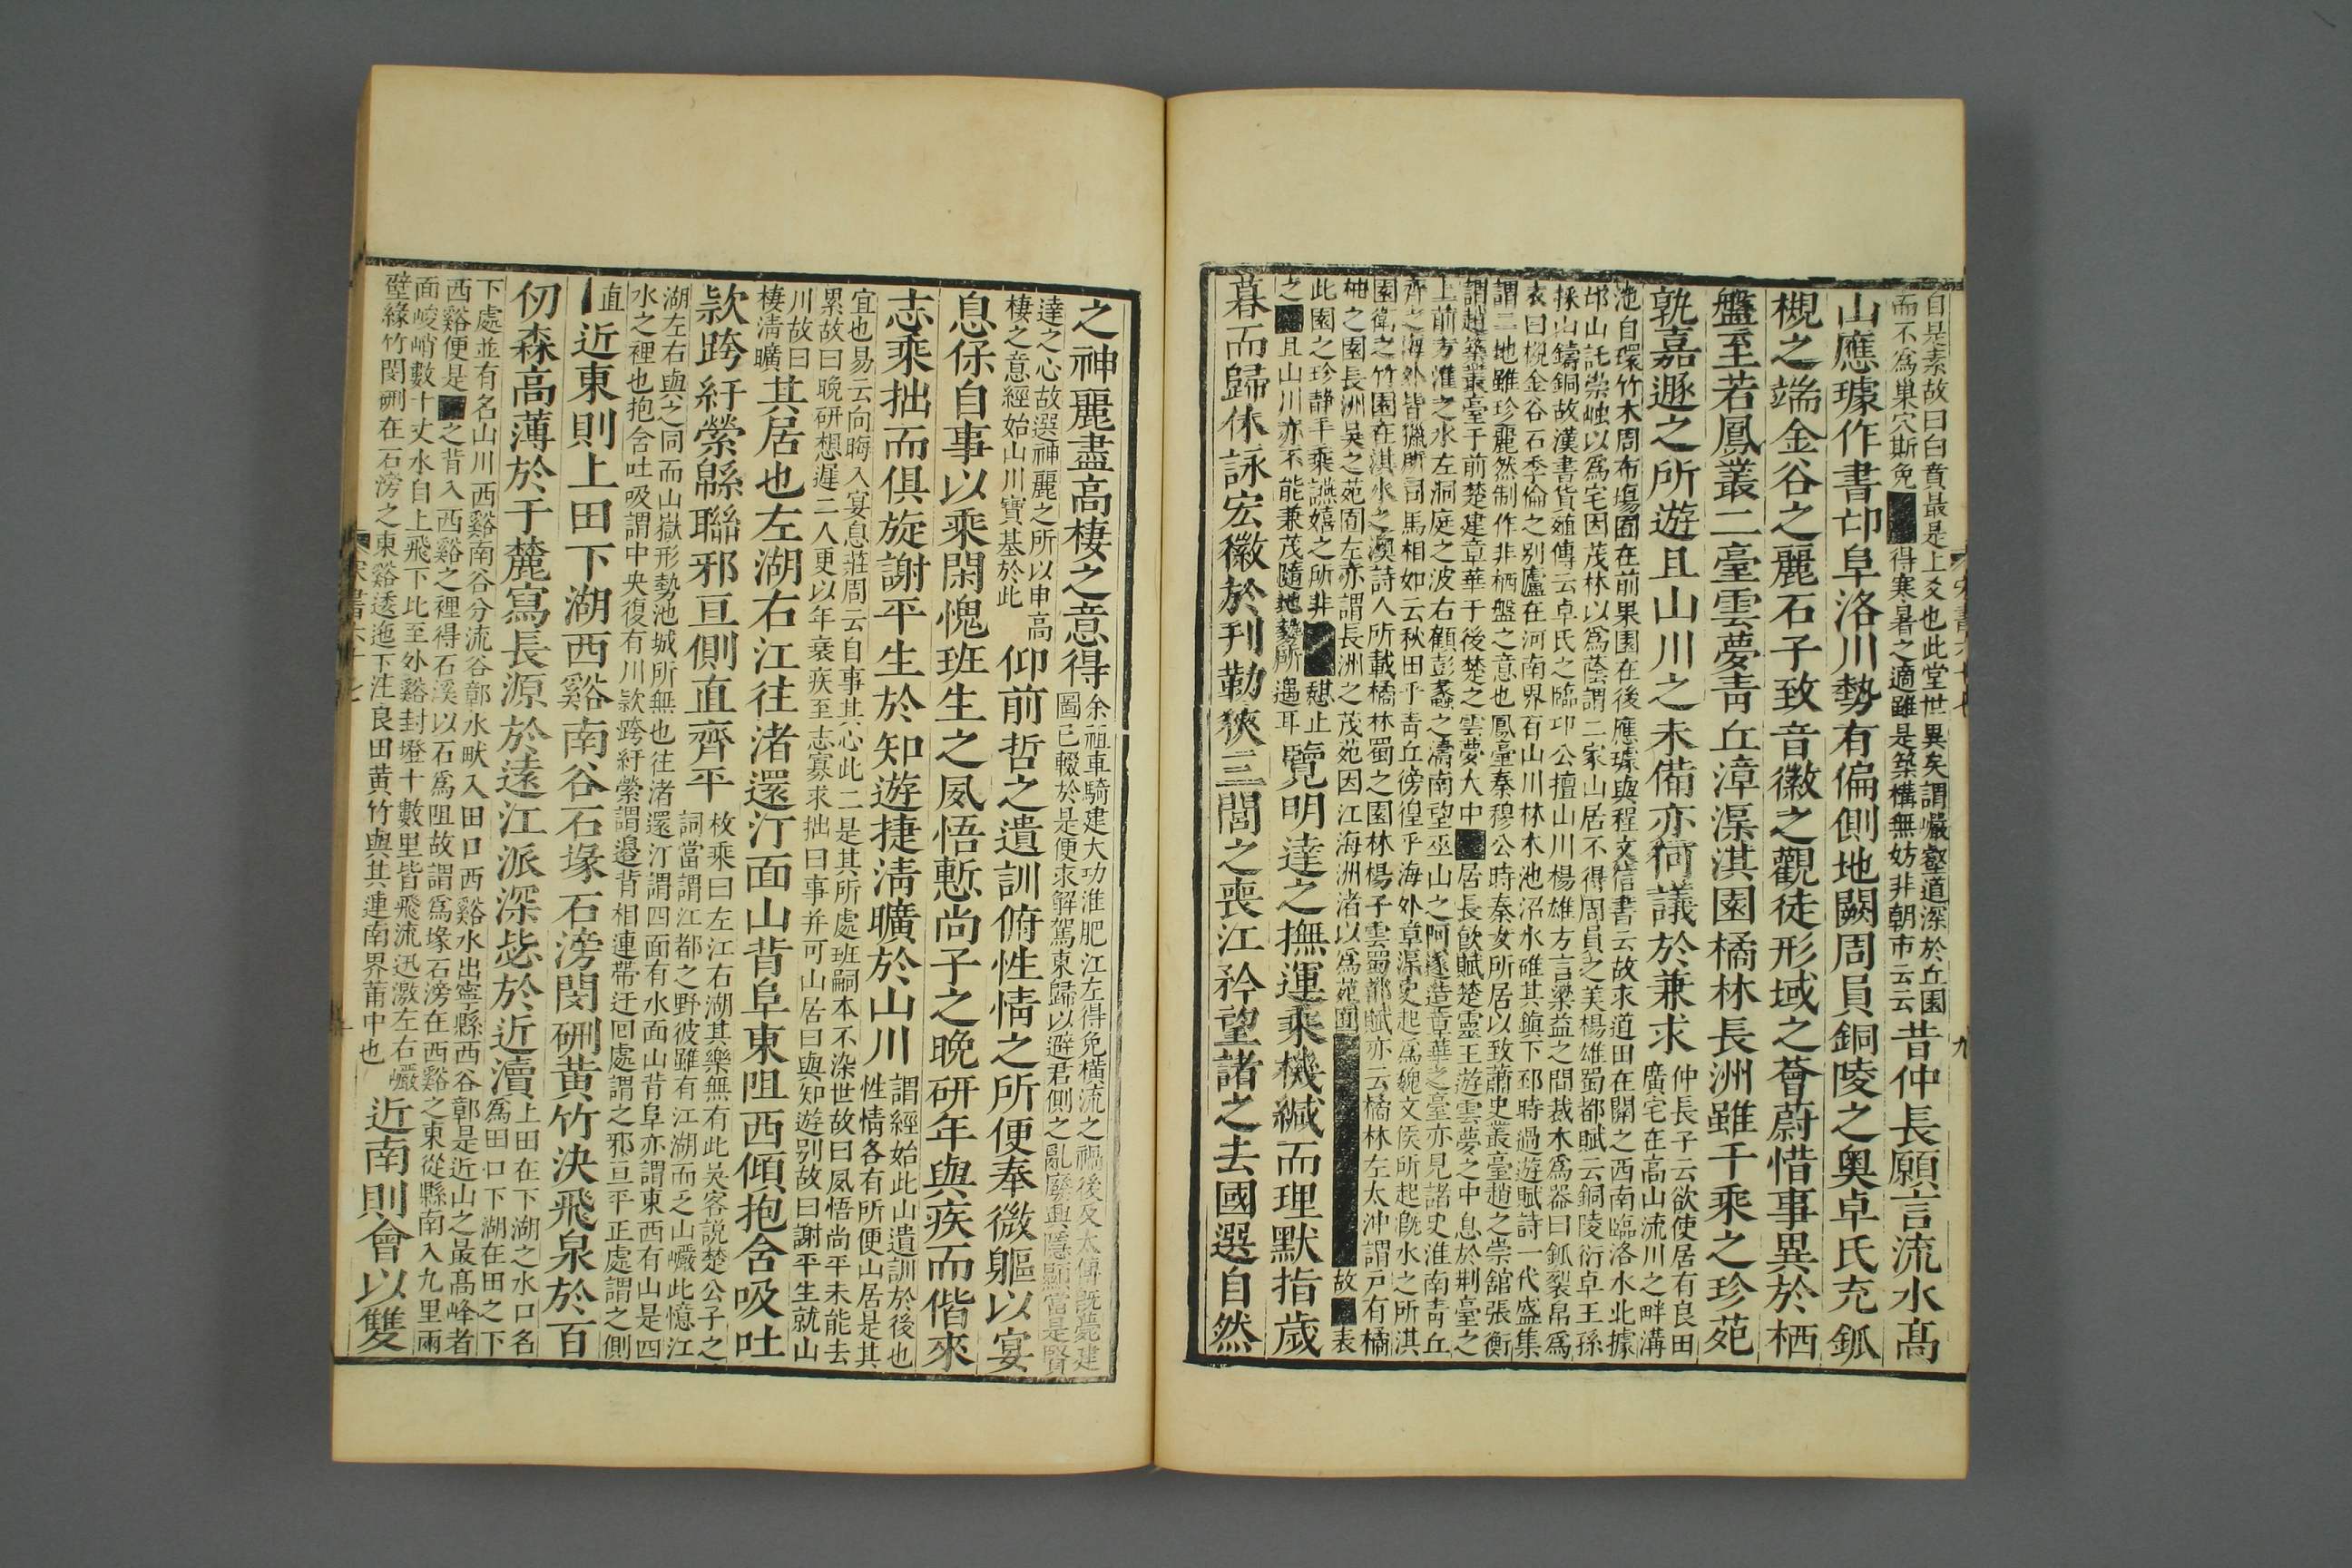 自是素故曰白賁最是上爻也此堂世異矣謂巖壑道深於丘園
而不為巢穴斯免■得寒暑之適雖是築構無妨非朝市云云
昔仲長願言流水高
山應璩作書邙阜洛川勢有偏側地闕周員銅陵之奥卓氏充釽
槻之端金谷之麗石子致音徽之觀徒形域之薈蔚惜事異於栖
盤至若鳳叢二臺雲夢青丘漳渠淇園橘林長洲雖千乘之珍苑
孰嘉遯之所遊且山川之未備亦何議於兼求
仲長子云欲使居有良田
廣宅在高山流川之畔溝
池自環竹木周布場圃在前果園在後應璩與程文信書云故求道田在關之西南臨洛水北據
邙山託崇岫以為宅因茂林以為蔭謂二家山居不得周員之美楊雄蜀都賦云銅陵衍卓王孫
採山鑄銅故漢書貨殖傳云卓氏之臨卭公擅山川楊雄方言梁益之間裁木為器曰釽裂帛為
衣曰槻金谷石季倫之別廬在河南界有山川林木池沼水碓其鎮下邳時過遊賦詩一代盛集
謂二地雖珍麗然制作非栖盤之意也鳳臺秦穆公時秦女所居以致蕭史叢臺趙之崇舘張衡
謂趙築叢臺于前楚建章華于後楚之雲夢大中■居長飲賦楚靈王遊雲夢之中息於荆臺之
上前方淮之水左洞庭之波右顧彭蠡之濤南望巫山之阿遂造章華之臺亦見諸史淮南青丘
齊之海外皆獵所司馬相如云秋田乎青丘徬徨乎海外漳渠史起為魏文侯所起溉水之所淇
園衛之竹園在淇水之澳詩人所載橘林蜀之園林楊子雲蜀都賦亦云橘林左太冲謂戸有橘
柚之園長洲吳之苑囿左亦謂長洲之茂苑因江海洲渚以為苑囿■故■表
此園之珍静千乘讌嬉之所非■憇止
之■且山川亦不能兼茂隨地勢所遇耳
覽明達之撫運乘機緘而理默指歲
暮而歸休詠宏徽於刊勒狹三閭之喪江矜望諸之去國選自然
之神麗盡高棲之意得
余祖車騎建大功淮肥江左得免橫流之禍後及太傅既薨建
圖已輟於是便求解駕東歸以避君側之亂廢興隱顯當是賢
達之心故選神麗之所以申高
棲之意經始山川實基於此
仰前哲之遺訓俯性情之所便奉微軀以宴
息保自事以乘閑愧班生之夙悟慙尚子之晚研年與疾而偕來
志乘拙而俱旋謝平生於知遊捷淸曠於山川
謂經始此山遺訓於後也
性情各有所便山居是其
宜也易云向晦入宴息莊周云自事其心此二是其所處班嗣本不染世故曰夙悟尚平未能去
累故曰晚研想遲二人更以年衰疾至志寡求拙曰事并可山居曰與知遊別故曰謝平生就山
川故曰
棲淸曠
其居也左湖右江往渚還汀面山背阜東阻西傾抱含吸吐
款跨紆縈緜聯邪亘側直齊平
枚乘曰左江右湖其樂無有此吳客說楚公子之
詞當謂江都之野彼雖有江湖而乏山巖此憶江
湖左右與之同而山嶽形勢池城所無也往渚還汀謂四面有水面山背阜亦謂東西有山是四
水之裡也抱含吐吸謂中央復有川款跨紆縈謂邉背相連帶迂囘處謂之邪亘平正處謂之側
直
近東則上田下湖西谿南谷石堟石滂閔硎黄竹決飛泉於百
仞森高薄於千麓寫長源於遠江派深毖於近瀆
上田在下湖之水口名
為田口下湖在田之下
下處並有名山川西谿南谷分流谷鄣水畎入田口西谿水出寧縣西谷鄣是近山之最髙峰者
西谿便是■之背入西谿之裡得石溪以石為阻故謂為堟石滂在西谿之東從縣南入九里兩
面峻峭數十丈水自上飛下比至外谿封墱十數里皆飛流迅激左右巖
壁緣竹閔硎在石滂之東谿逶迤下注良田黄竹與其連南界莆中也
近南則會以雙